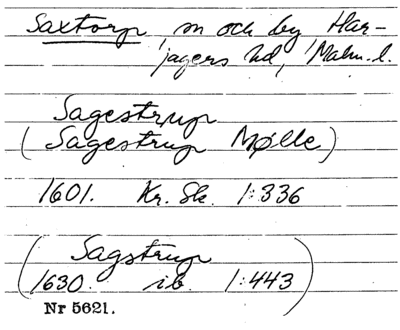 Saxtorp, sn och by Har-
jagers hd, Malm. l.
Sagestrup
(Sagestrup Mølle)
1601. Kr. Sk. 1:336
(Sagstrup
1630. ib. 1:443)
Nr 5621.